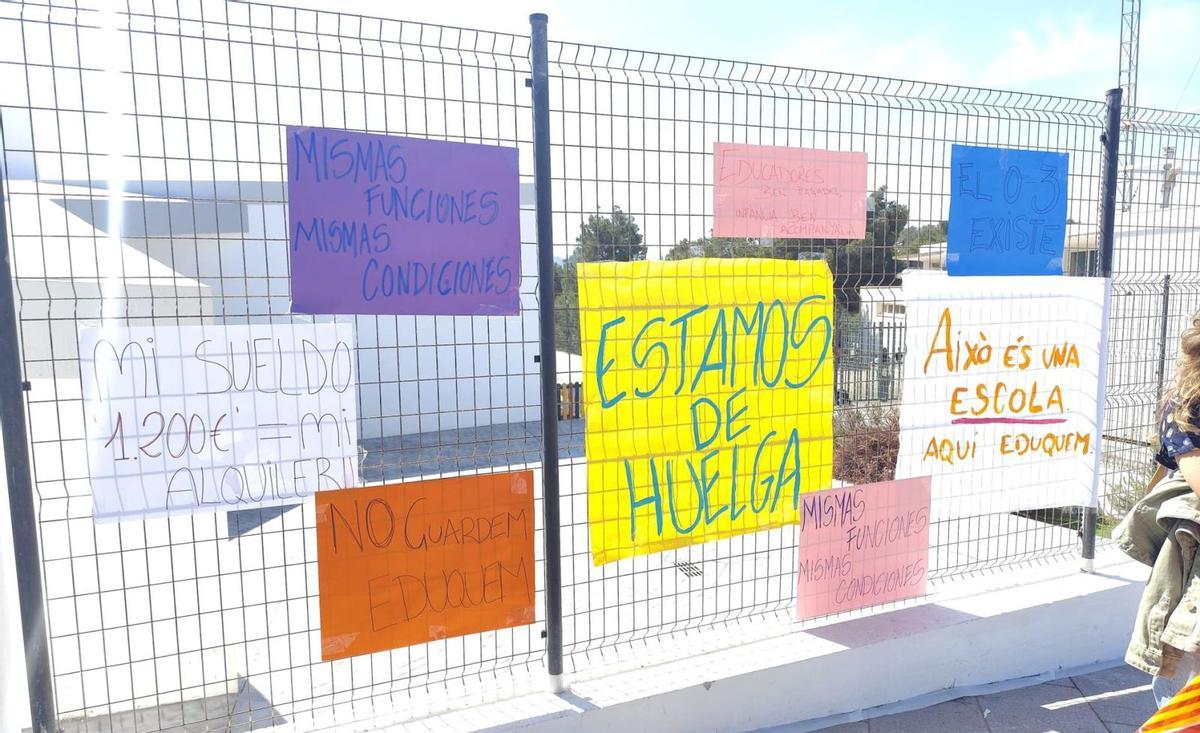 MISMAS
FUNCIONES
MISMAS
CONDICIONES
EDUCADORES
BEN PAGADES
INFANCIA BEN
ACOMPANYADA
EL 0-3
EXISTE
MI SUELDO
1.200€ = MI
ALQUILER!!
ESTAMOS
DE
HUELGA
Això és una
ESCOLA
AQUI EDUQUEM.
NO GUARDEM
EDUQUEM
MISMAS
FUNCIONES
MISMAS
CONDICIONES